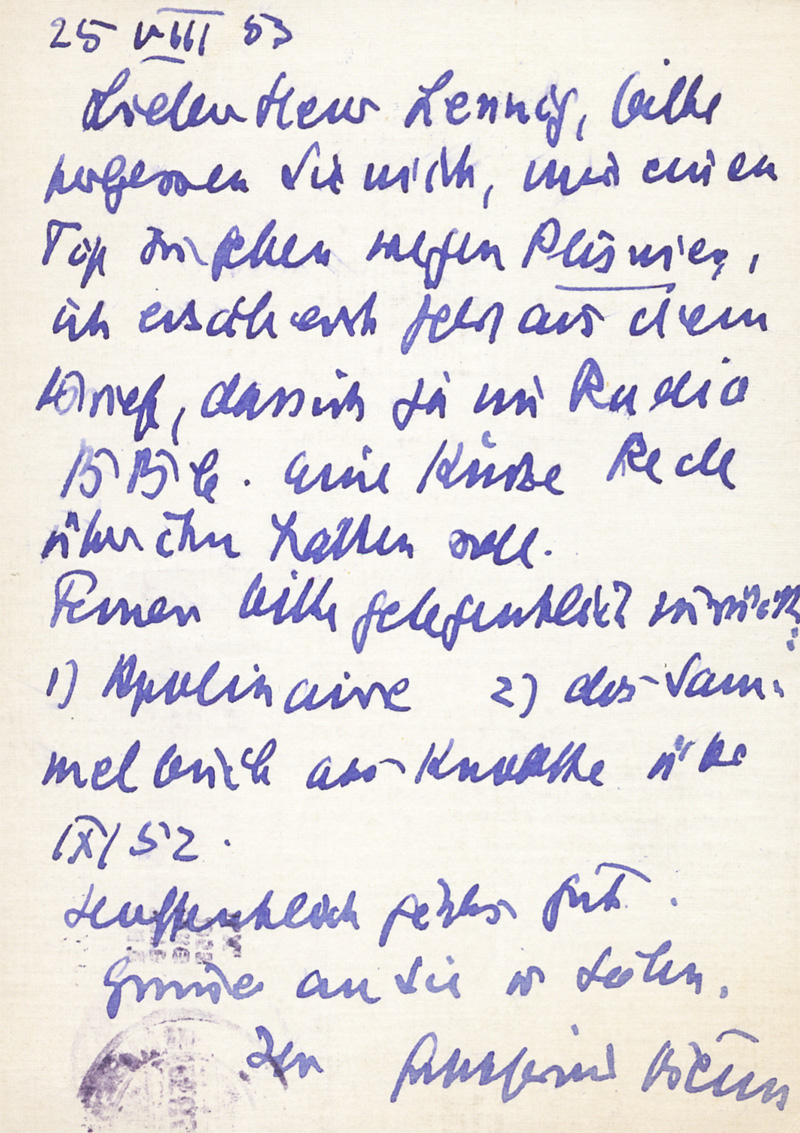 25 VIII 53
Lieber Herr Lennig, bitte
vergessen Sie nicht, mir einen
Tip zu geben wegen Plisnier,
ich ersehe erst jetzt aus dem
Brief, dass ich ja im Radio
BBC. eine kurze Rede
über ihn halten soll.
Ferner bitte gelegentlich zurück:
1) Apolinaire 2) das Sam-
melbuch aus Knokke über
IX/52.
Hoffentlich geht's gut.
Grüsse an Sie u
Ihr